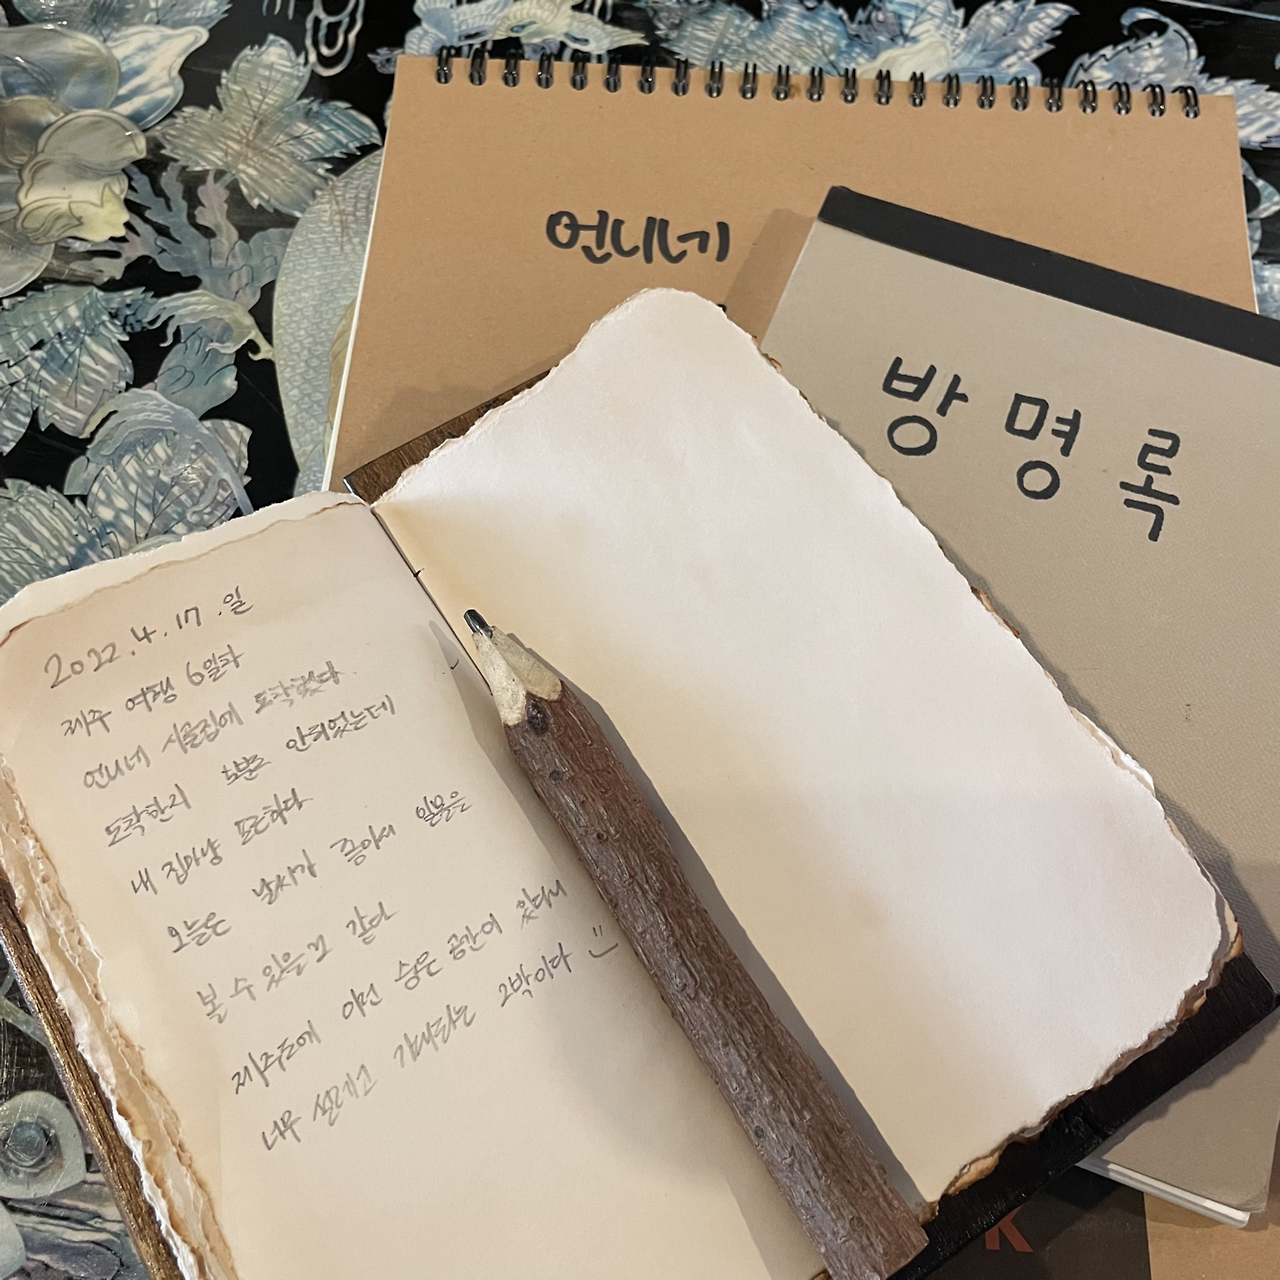 언니네
방명록
2022.4.17.일
제주 여행 6일차
언니네 시골집에 도착했다.
도착한지 5분도 안되었는데
내 집마냥 포근하다
오늘은 날씨가 좋아서 일몰을
볼 수 있을거 같다
제주도에 이런 숨은 공간이 있다니
너무 설레고 기대되는 2박이다 :)
K